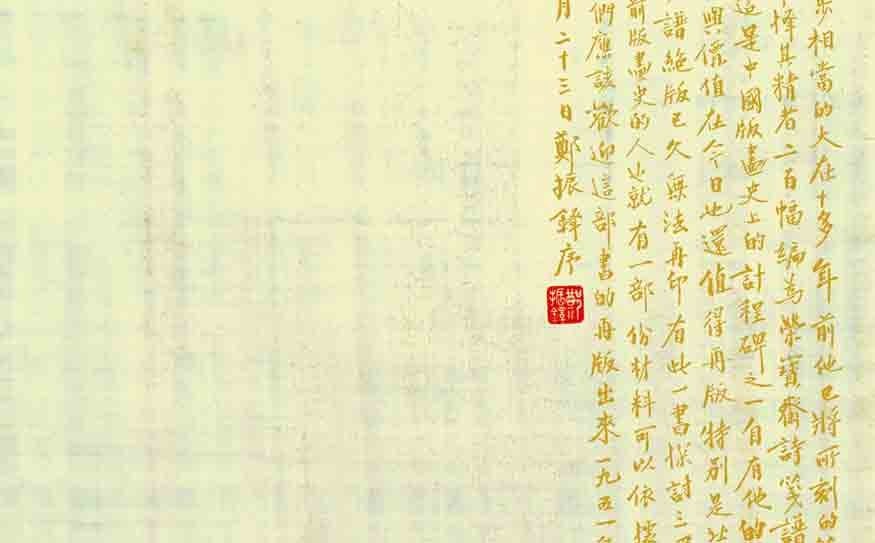 相當的大在十多年前他已將所刻的
擇其精者二百幅編為榮寶齋詩箋譜
這是中國版畫史上的計程碑之一自有他的
興價值在今日也還值得再版特別是
譜絕版已久無法再印有此一書保詩
前版畫史的人也就有一部份材料可以依據
們應該歡迎這部書的再版出來一九五一
月二十三日鄭振鐸序